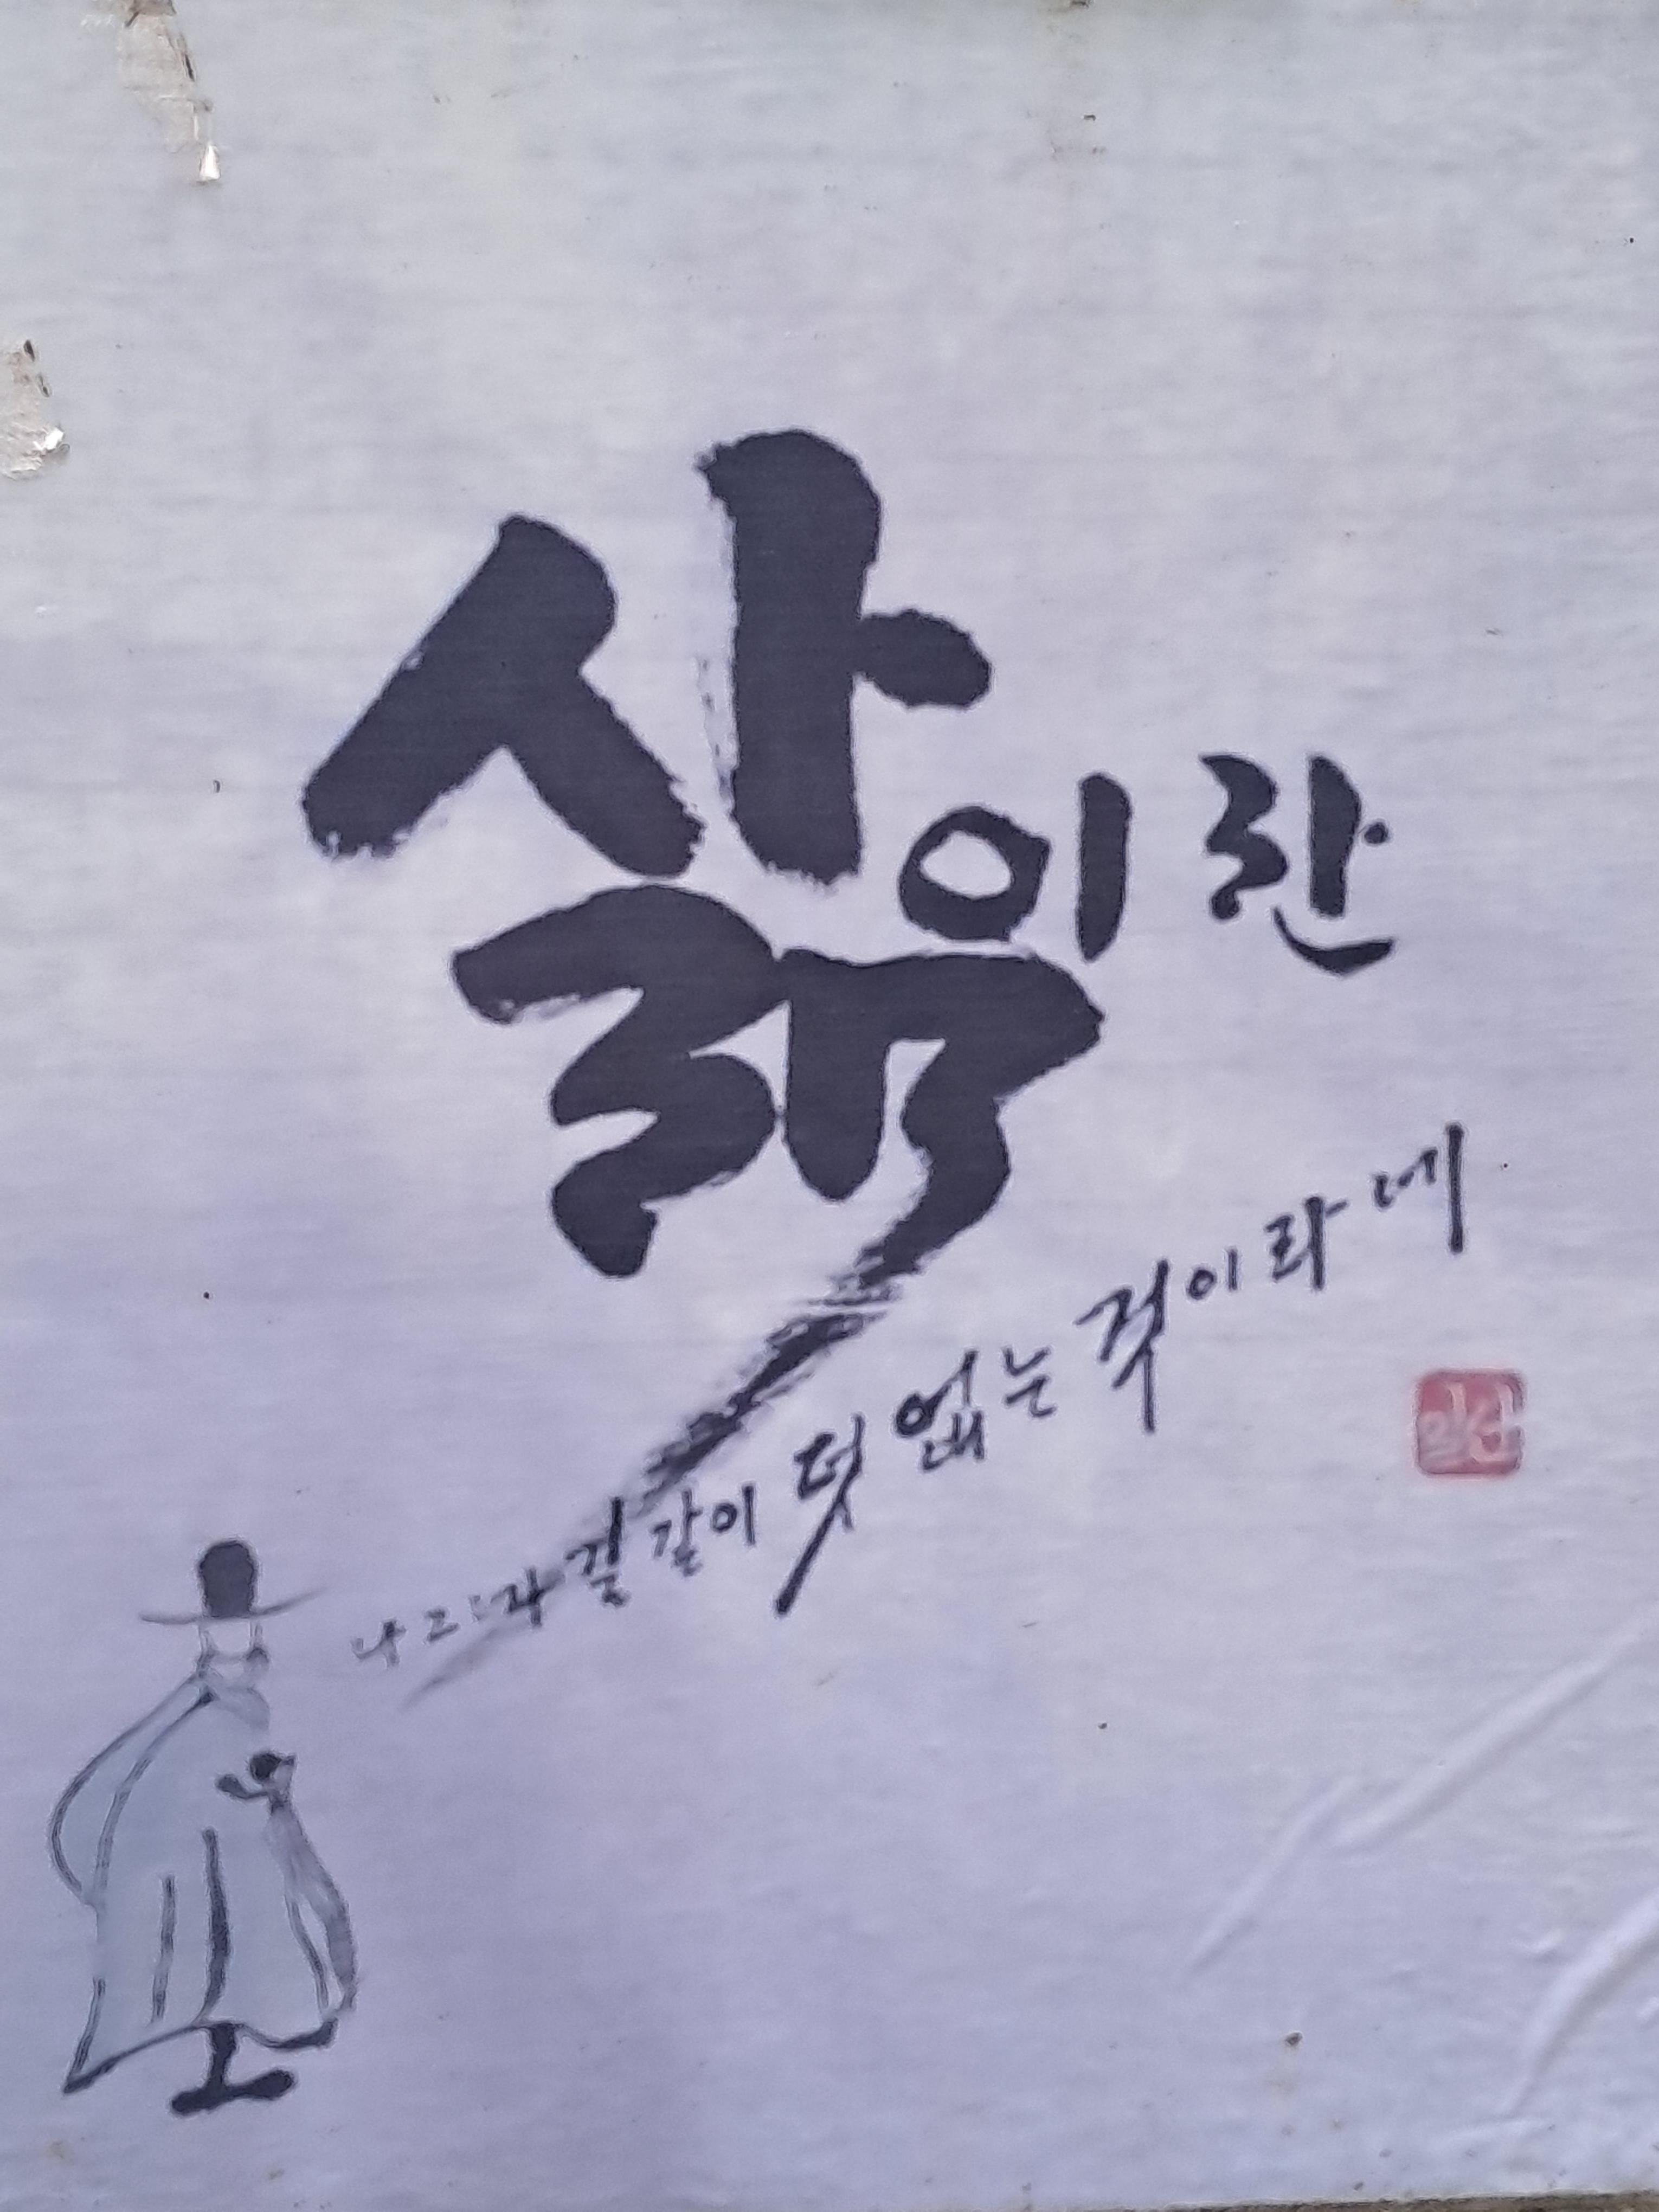 삶이란
나그네 길 같이 덧없는 것이라네